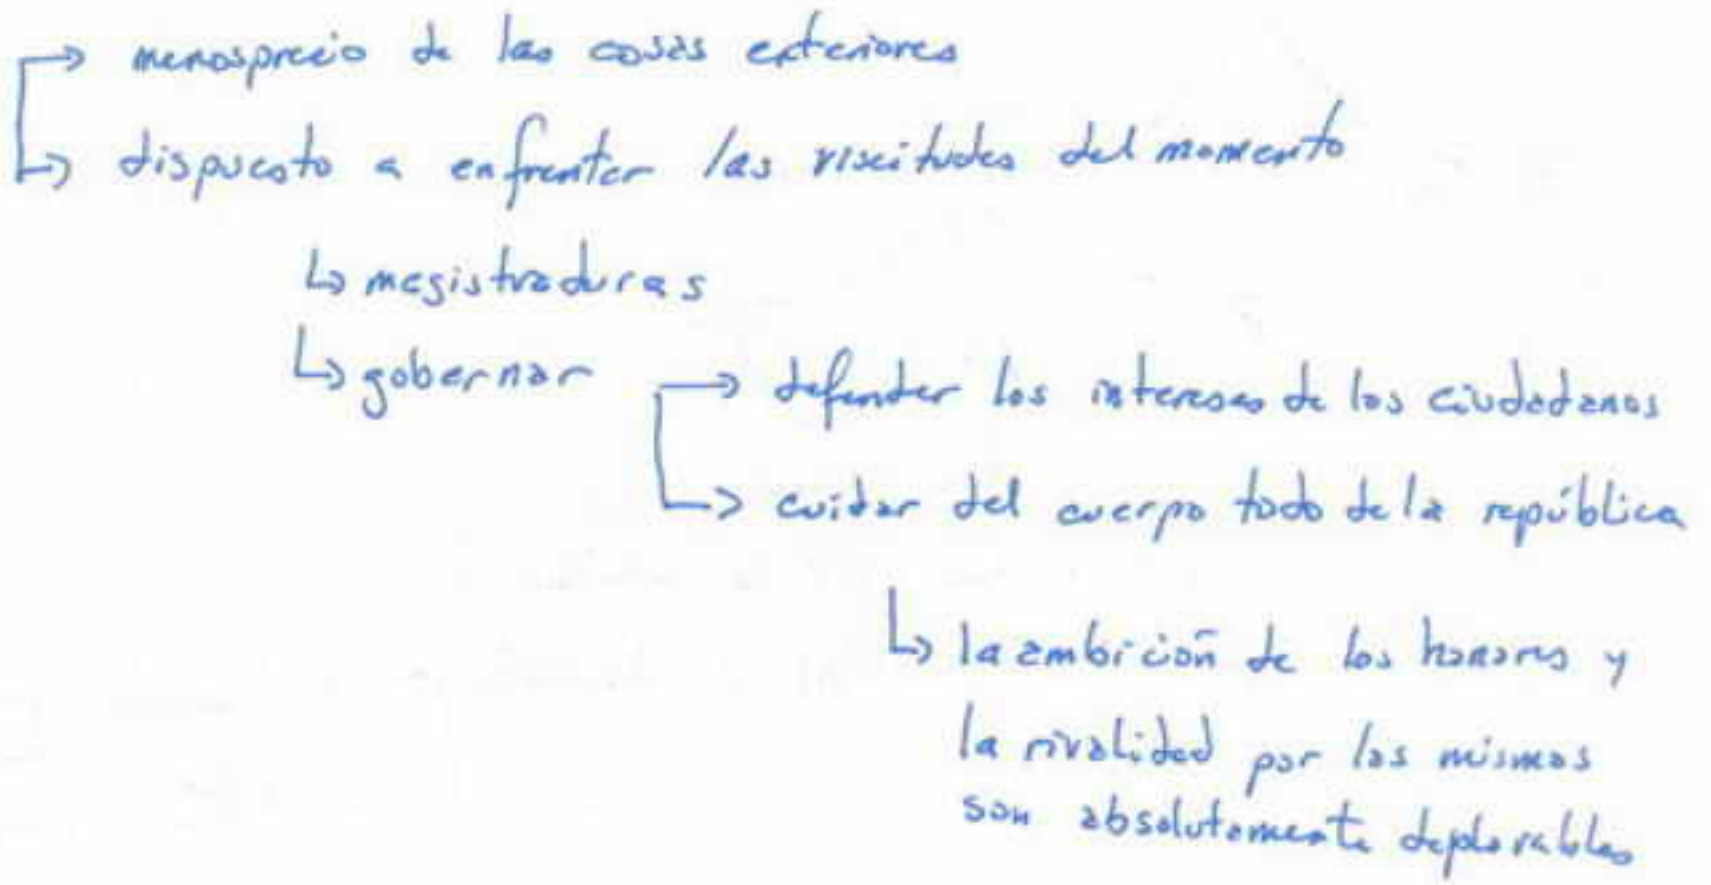 → menosprecio de las cosas exteriores
↳ dispuesto a enfrentar las viscitudes del momento
↳ magistraduras
↳ gobernar → defender los intereses de los ciudadanos
↳ cuidar del cuerpo todo de la república
↳ la ambición de los honores y
la rivalidad por los mismos
son absolutamente deplorables